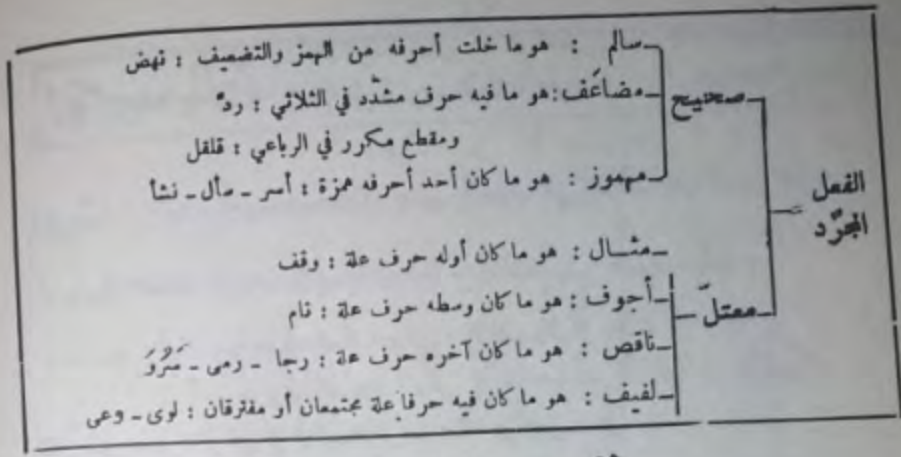 سالم : هو ما خلت أحرفه من الهمز والتضعيف : نهض
مضاعَف : هو ما فيه حرف مشدّد في الثلاثي : ردّ
ومقطع مكرر في الرباعي : قلقل
مهموز : هو ما كان أحد أحرفه همزة : أسر - سأل - نشأ
صحيح
الفعل
المجرّد
مثـال : هو ما كان أوله حرف علة : وقف
أجوف : هو ما كان وسطه حرف علة : نام
معتلّ
ناقص : هو ما كان آخره حرف علة : رجا - رمى - سَرُوَ
لفيف : هو ما كان فيه حرفا علة مجتمعان أو مفترقان : لوى - وعى